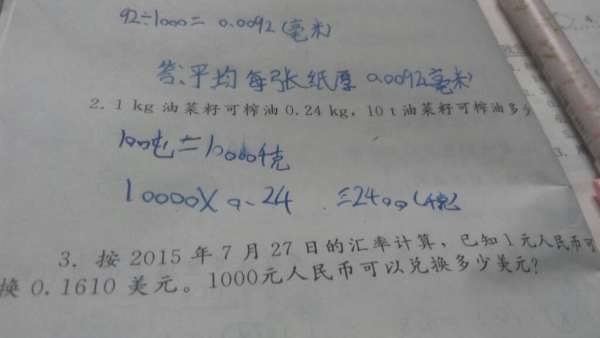 92÷1000= 0.0092(毫米)
答:平均每张纸厚 0.0092毫米
2. 1 kg 油菜籽可榨油 0.24 kg, 10 t 油菜籽可榨油多
=10000千克
10000×0.24 =2400(千克)
3. 按 2015 年 7 月 27 日的汇率计算,已知 1 元人民币可
换 0.1610 美元。1000元人民币可以兑换多少美元?